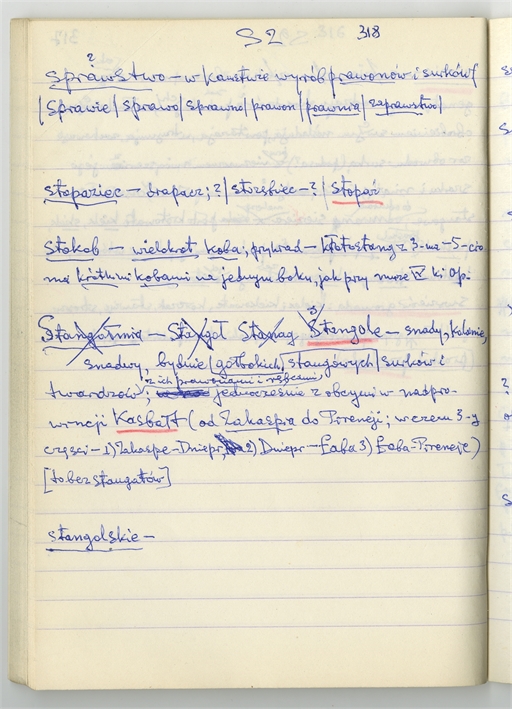 S2 318
?
sprawstwo – w kaustwie wyrob prawonów i surków/
/sprawie/ sprawo/ sprawno/ prawon/ prawnia/ zaprawstwo/
stopaziec – drapacz; ?/ storsbiec – ?/ stopar
stokob – wielokrot, koba; przykład –
ma krótkimi kobami na jednym boku, jak przy nuze IV ki op.
Stangolnia – Stangol Stanag Stangole – snady, kolonie,
snadwy, bydnie/ gotbokich, stangowych/ surków i
z ich prawoziami i
twardzów; jednocześnie z obcymi w nadpro-
wincji Kasbatt (od Zakaspia do Pireneji; w czem 3-y
części – 1) Zakaspe-Dniepr, 2) Dniepr – Łaba 3) Łaba-Pireneje)
[to bez stangatów]
stangolskie –